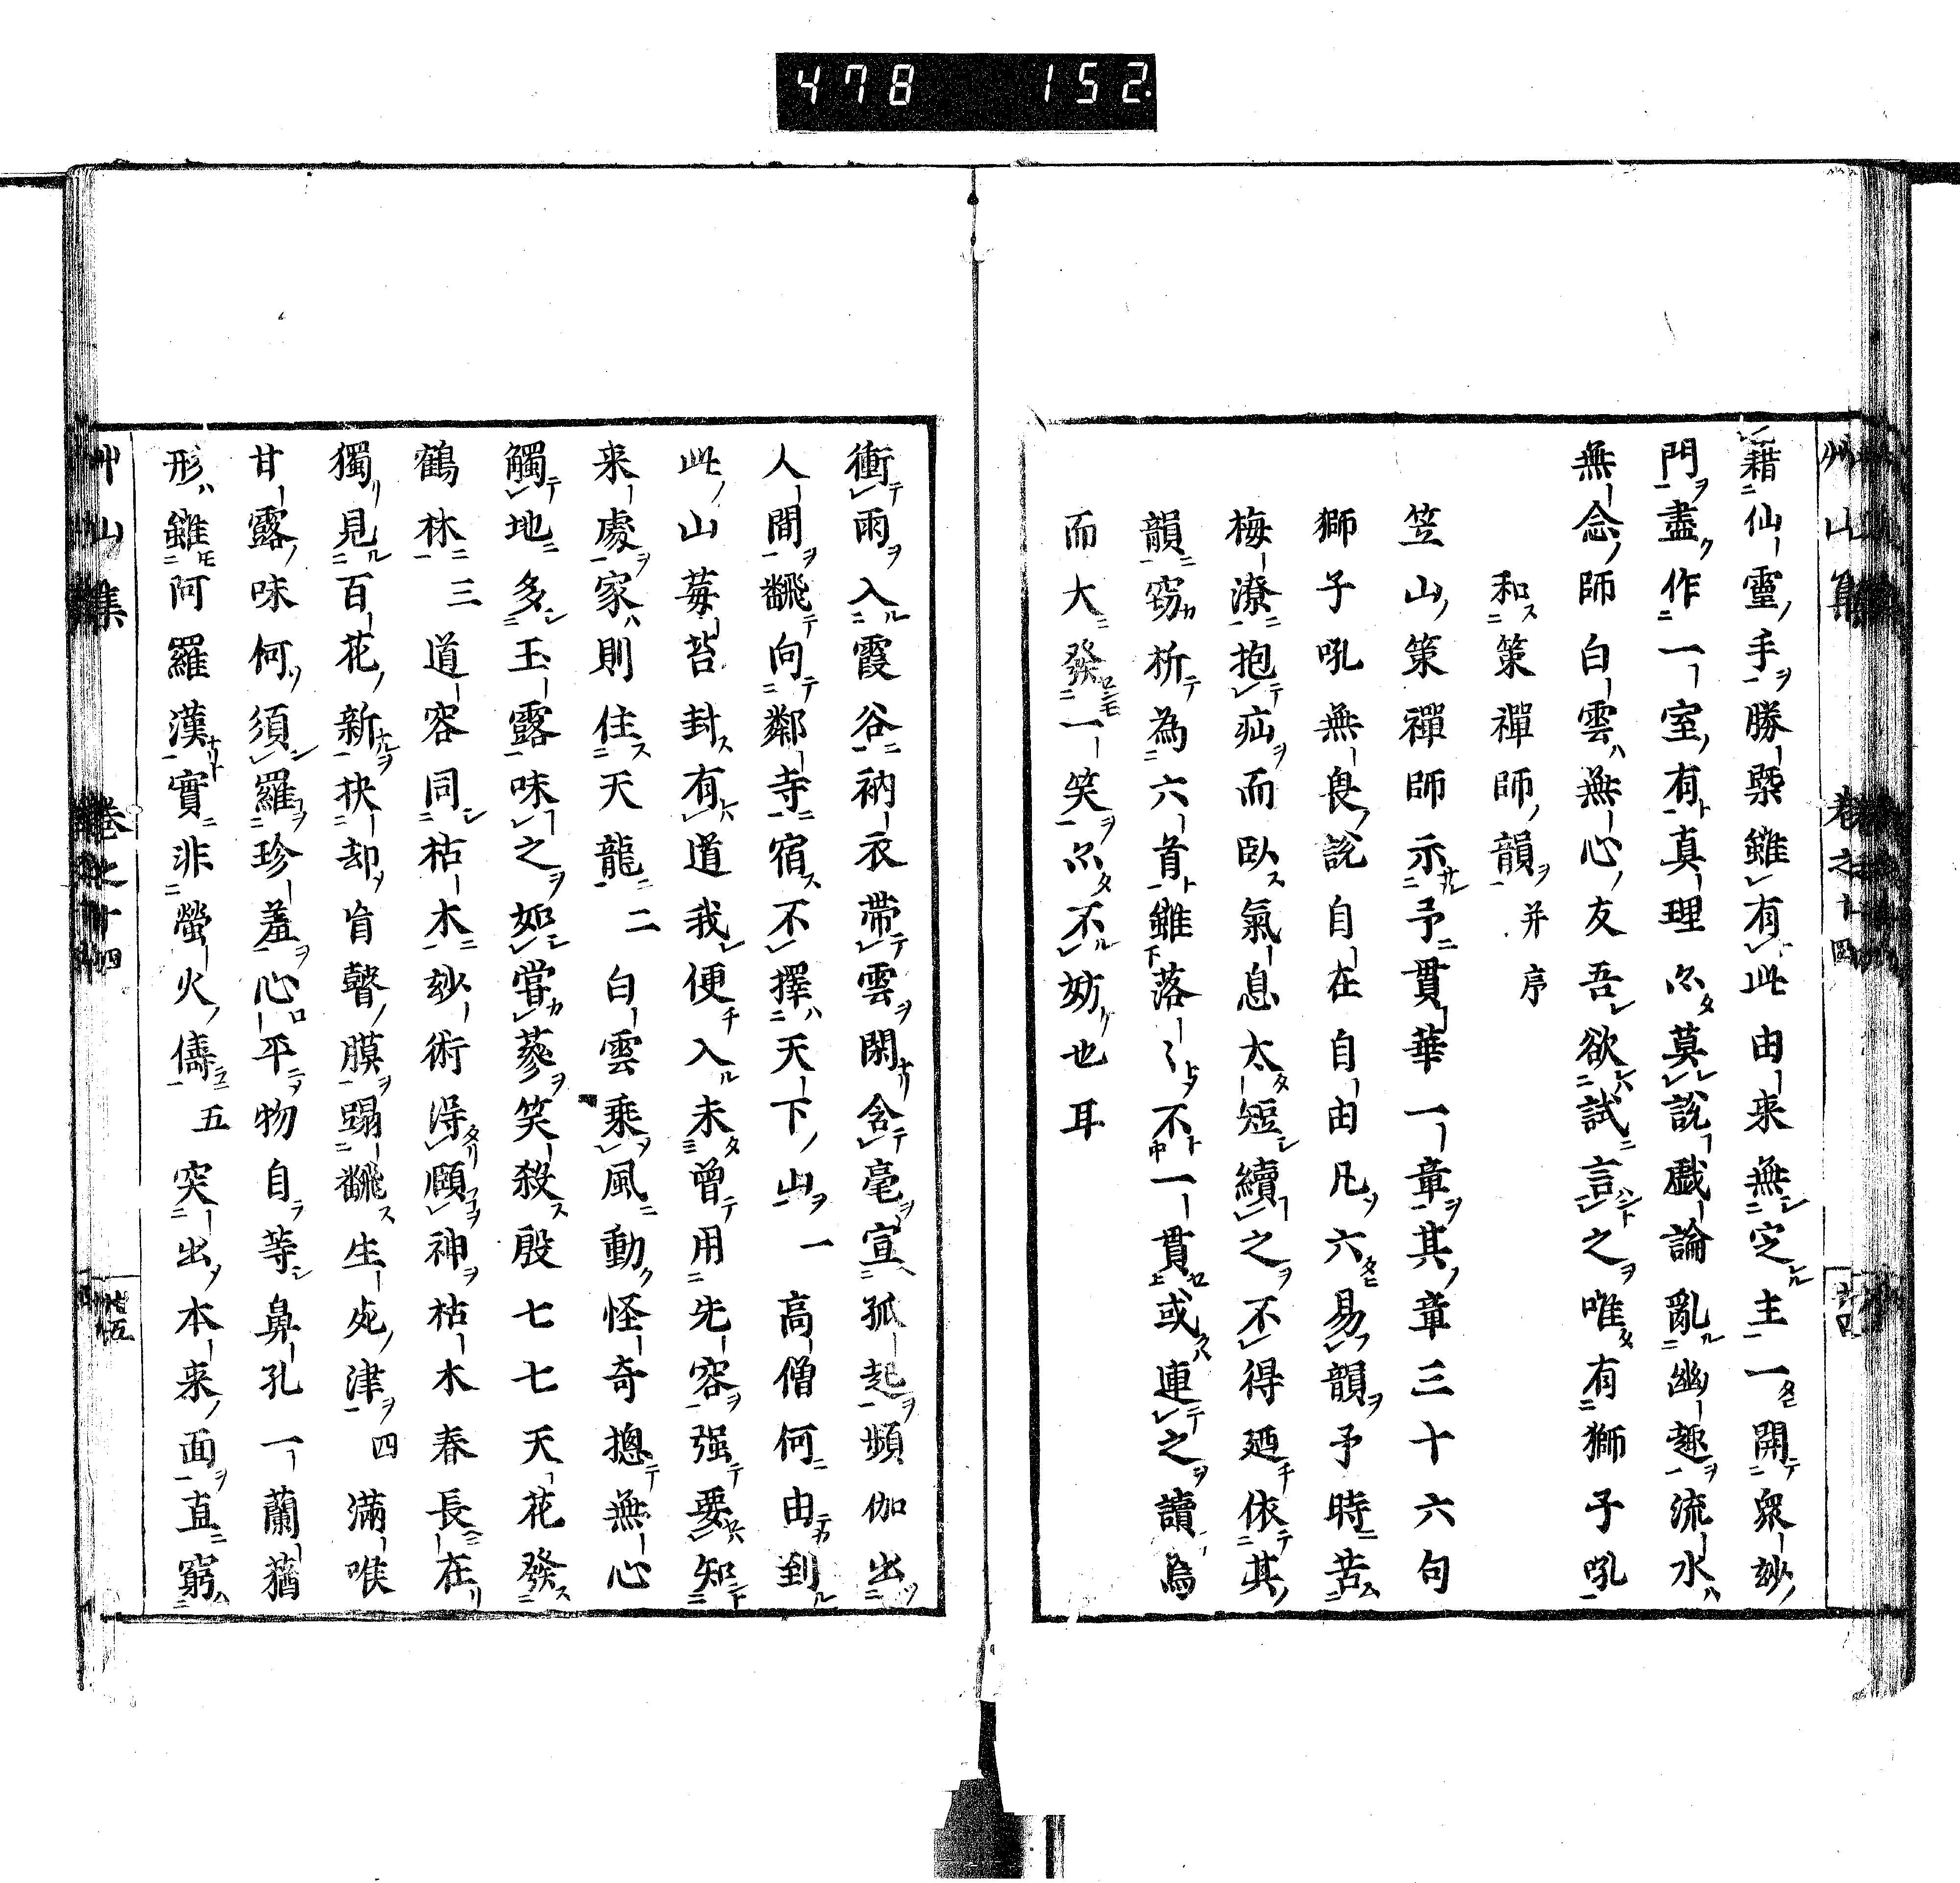 478 152
艸山集 卷之十四
藉仙靈手勝槩雖有此由来無定主一開衆妙
門盡作一室有真理尒莫說戲論亂幽趣流水
無念師白雲無心友吾欲試言之唯有獅子吼
和策禪師韻并序
笠山策禪師示予貫華一章其章三十六句
獅子吼無畏說自在自由凡六易韻予時苦
梅潦抱疝而臥氣息太短續之不得廼依其
韻竊析為六首雖落〻不一貫或連之讀為
而大發一笑尒不妨也耳
衝雨入霞谷衲衣帶雲閑含毫宣孤起頻伽出
人間飜向鄰寺宿不擇天下山一高僧何由到
此山莓苔封有道我便入未曾用先容强要知
来處家則住天龍二白雲乘風動怪奇摠無心
觸地多玉露味之如嘗蔘笑殺殷七七天花發
鶴林三道容同枯木玅術得頤神枯木春長在
獨見百花新抉却盲瞽膜蹋飜生死津四滿喉
甘露味何須羅珍羞心平物自等鼻孔一蘭蕕
形雖阿羅漢實非螢火儔五突出本来面直窮
艸山集 卷之十四 十五